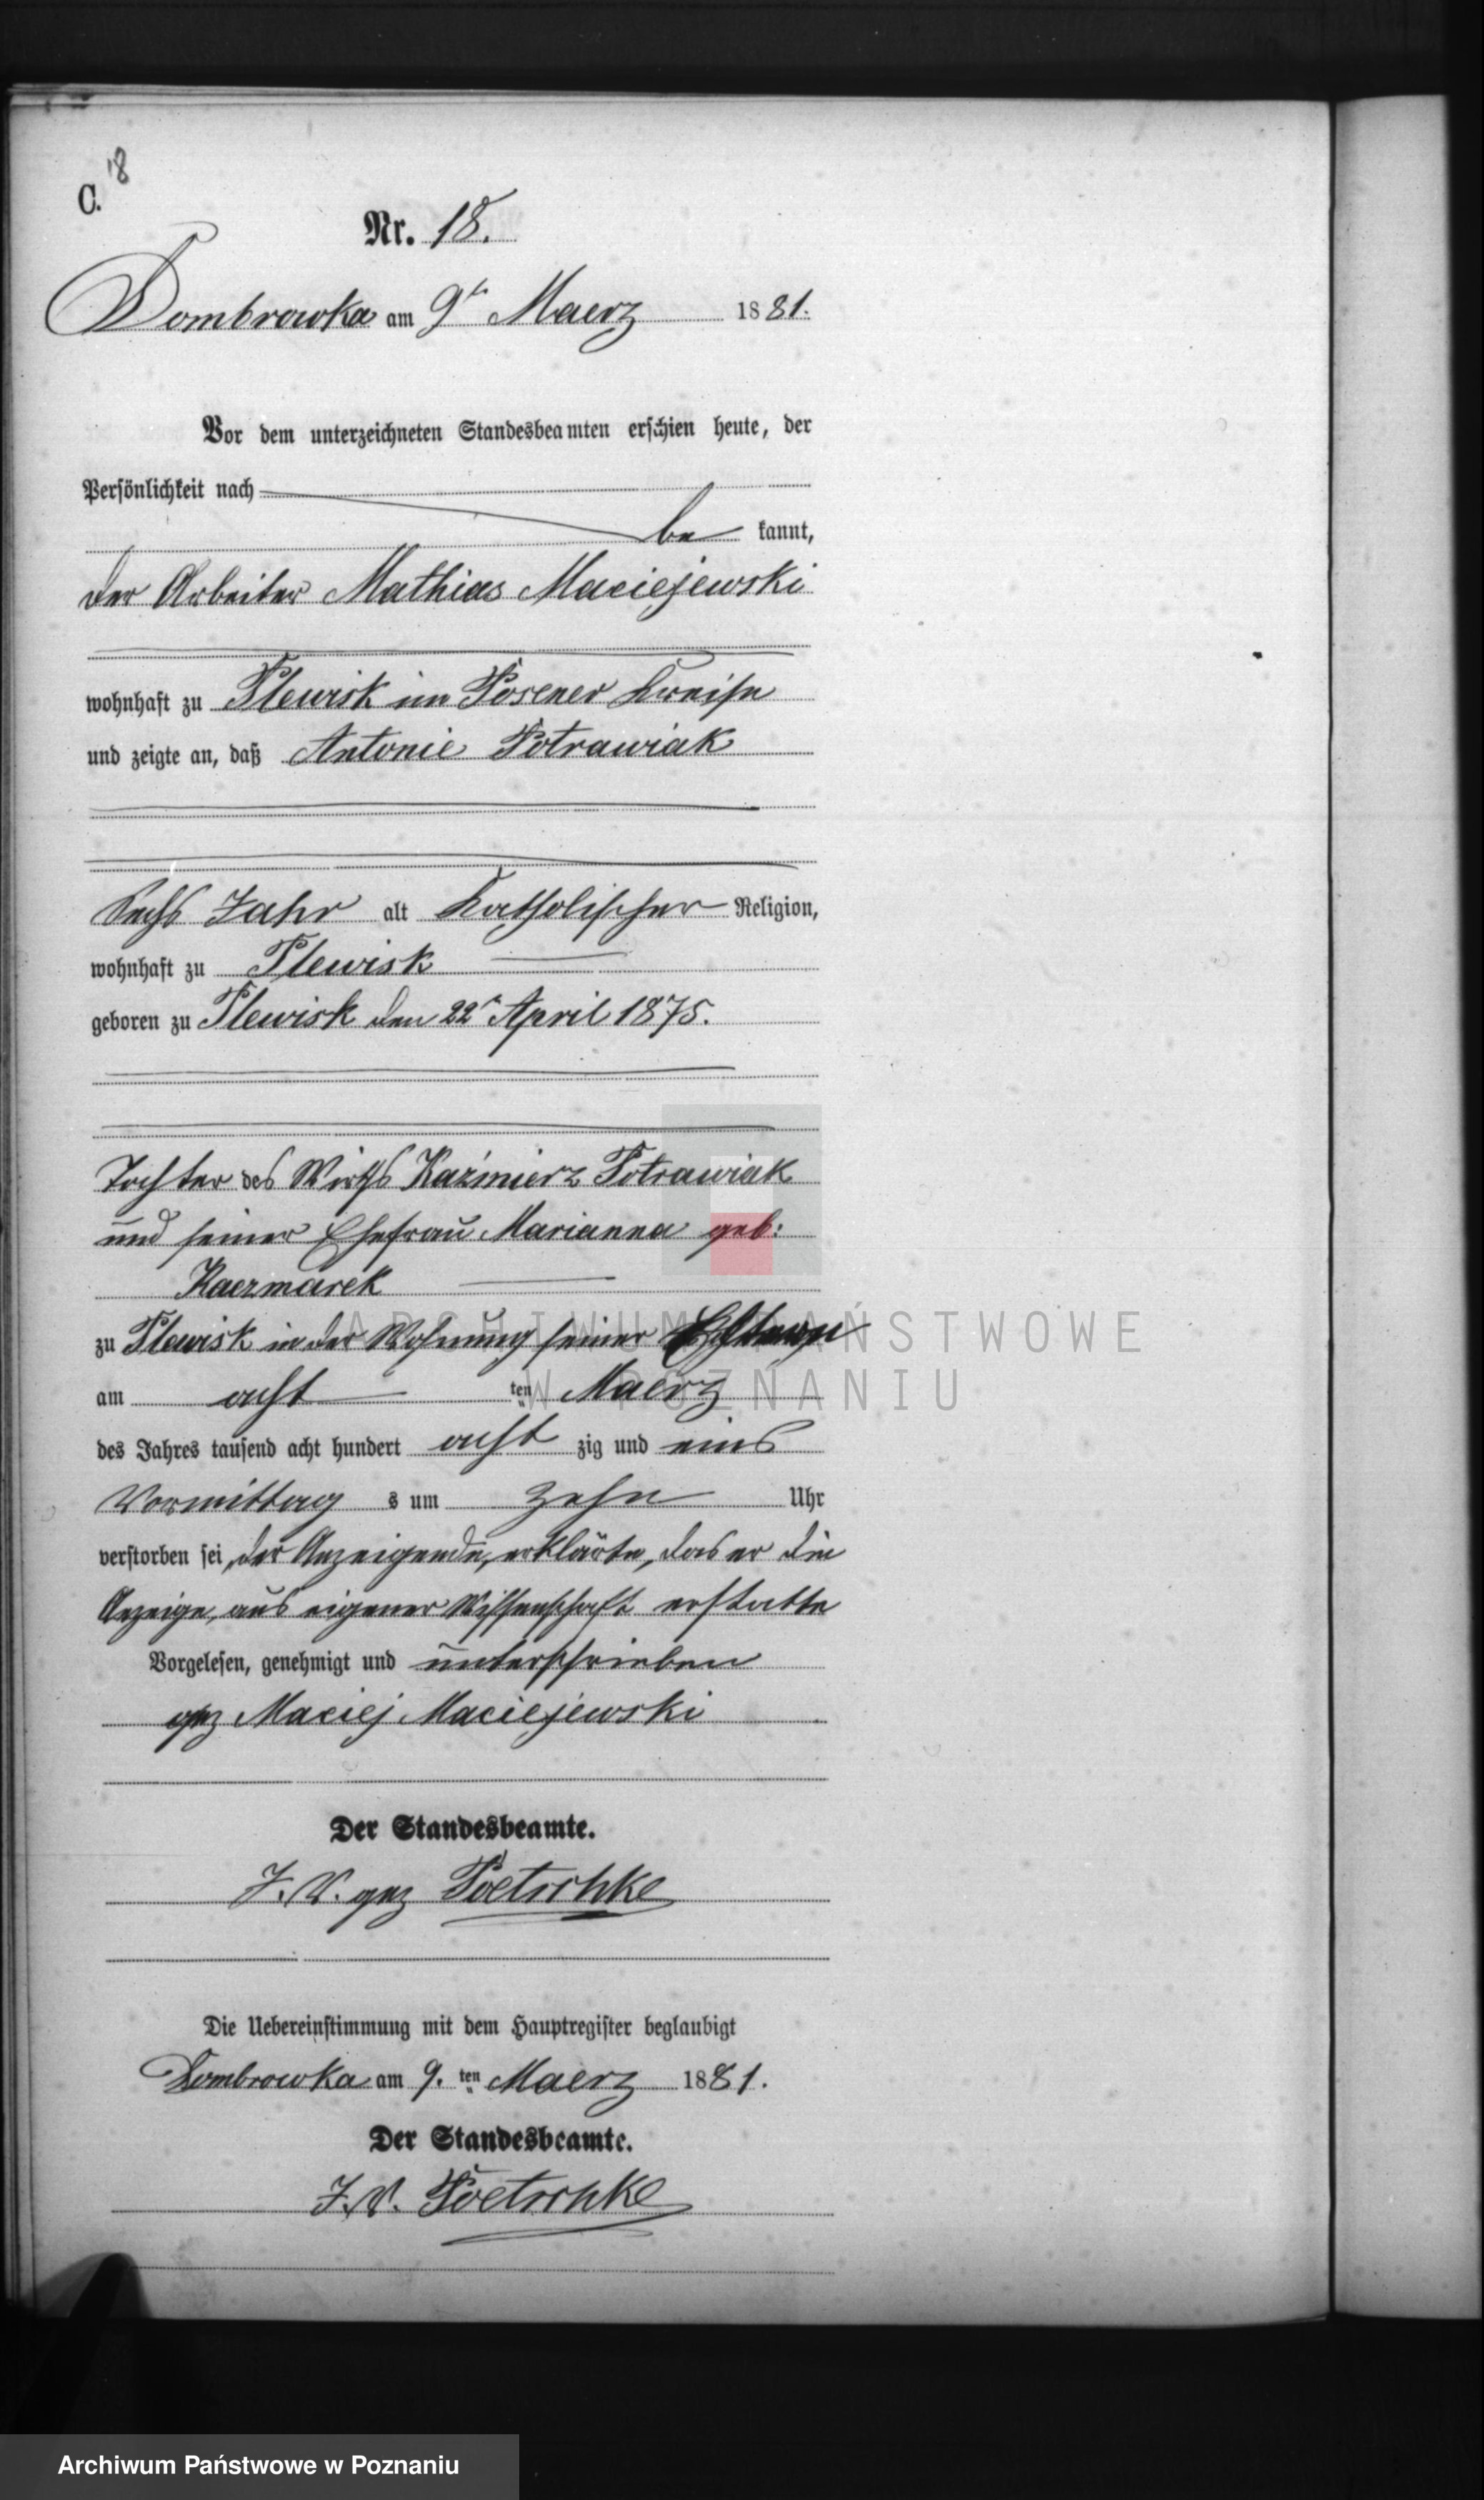 18
C.
Nr. 18.
Dombrowka am 9te Maerz 1881.
Vor dem unterzeichneten Standesbeamten erschien heute, der
Persönlichkeit nach
be kannt,
der Arbeiter Mathias Maciejewski
wohnhaft zu Plewisk im Posener Kreise
und zeigte an, daß Antonie Potrawiak
Sechs Jahr alt Katholischer Religion,
wohnhaft zu Plewisk
geboren zu Plewisk den 22te April 1875.
Tochter des Wirths Kazmierz Potrawiak
und seiner Ehefrau Marianna geb:
Kaczmarek
zu Plewisk in der Wohnung seiner
am acht ten Maerz
des Jahres tausend acht hundert acht zig und eins
Vormittag s um zehn Uhr
verstorben sei, der Anzeigende, erklärte, das er die
Anzeige, aus eigener Wissenschaft erstatte
Vorgelesen, genehmigt und unterschrieben
gez Maciej Maciejewski
Der Standesbeamte.
J. V. gez Poetschke
Die Uebereinstimmung mit dem Hauptregister beglaubigt
Dombrowka am 9. ten Maerz 1881.
Der Standesbeamte.
J. V. Poetschke
ARCHIWUM PAŃSTWOWE
W POZNANIU
Archiwum Państwowe w Poznaniu